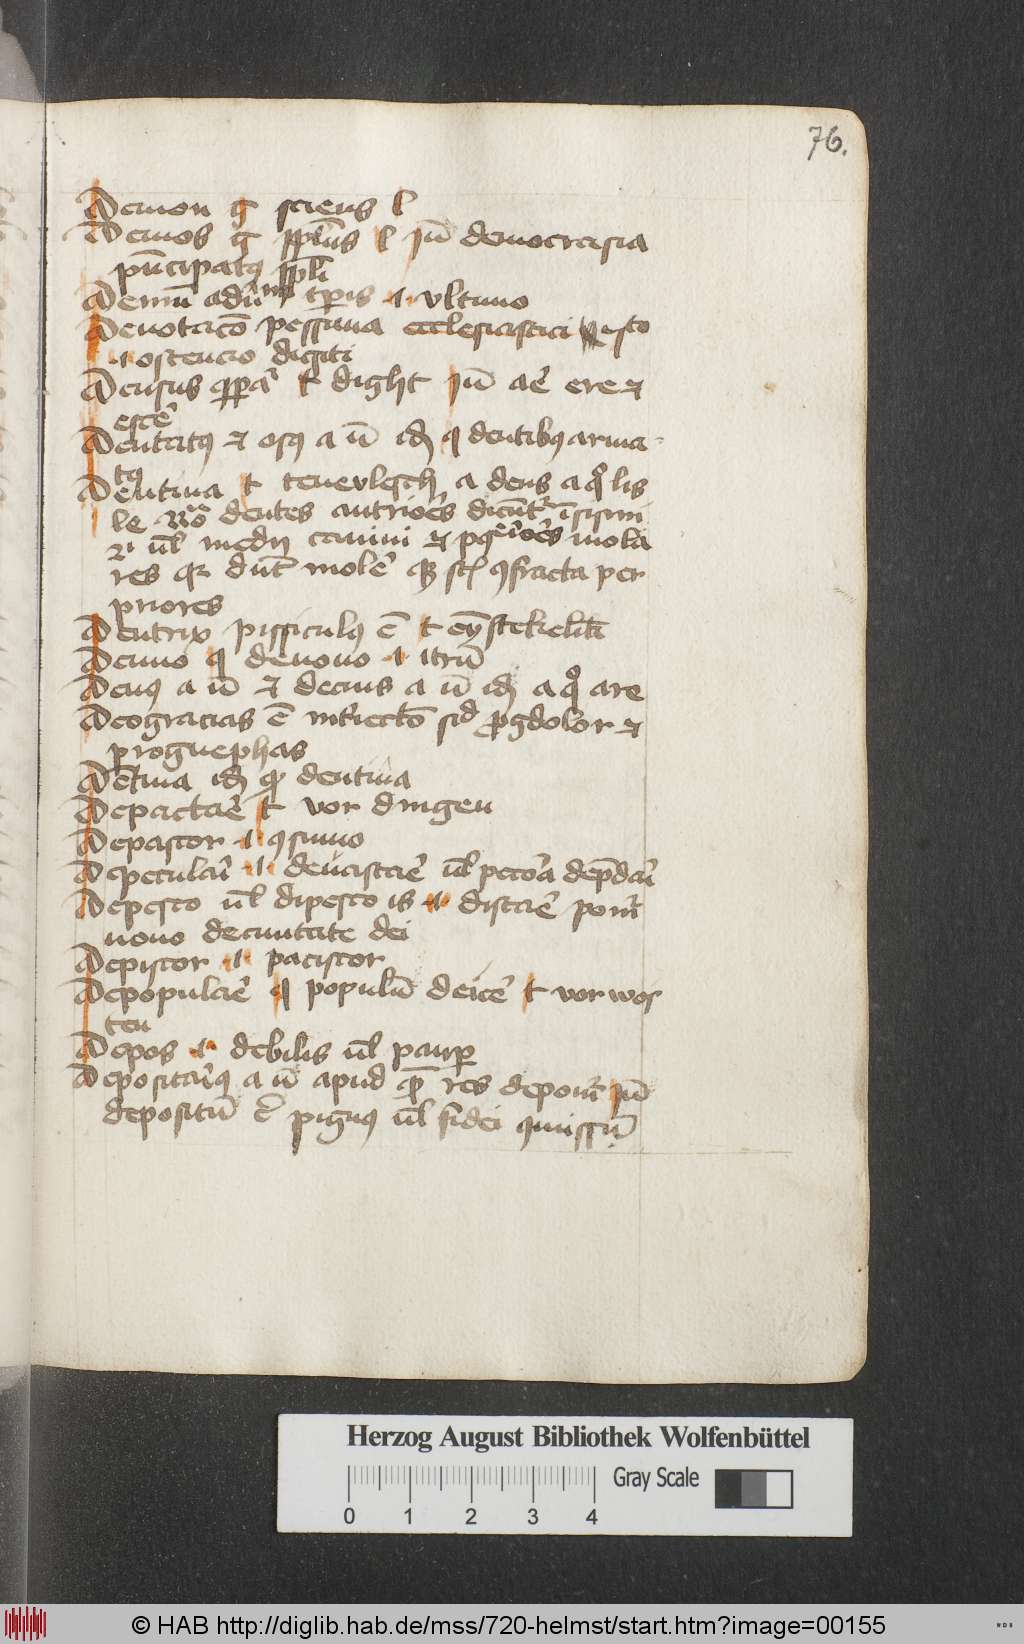 76.
Demon g sciens l
Demos g ppl̅us l Jn̅ democrasia
pn̅cipatus ppl̅i
Demu̅ adu̅ t̅pis .i. vltimo
Denotaco̅ pessima ecclesiastici esto
.i. ostencio digiti
Densus t dight Jn̅ de̅ ere et
esce̅
Dentatus et osus a u̅ id̅ q dentibus arma
tus
Dentina t tenevlesch a dens a quo lis
le dentes antrio̅es dicu̅t̅ i̅sisini
medij canini et mola
res dn̅t mole̅ fracta per
priores
Dentrix pissiculus e̅ t eyn stekelik
Denuo q denouo .i. itru̅
Deus a u̅ et decius a u̅ id̅ a quo are
Deogracias e̅ int̅iecto̅ dolor et
proguephas
De̅tina id̅ dentina
Depactare̅ t vor dingen
Depascor .i. 9sumo
Depecula̅i .i. deuastare̅ ul̅ peco̅a dep̅da̅i
Depesco ul̅ dipesco is .i. distare̅ pom̅
nono de ciuitate dei
Depiscor .i. paciscor
Depopulare̅ q populu̅ deice̅ t vorwos
ten
Depos .i. debilis ul̅ paup̅
Depositarius a u̅ apud res depom̅ Jn̅
depositu̅ pignus ul̅ fidei
Herzog August Bibliothek Wolfenbüttel
Gray Scale
0 1 2 3 4
© HAB http://diglib.hab.de/mss/720-helmst/start.htm?image=00155